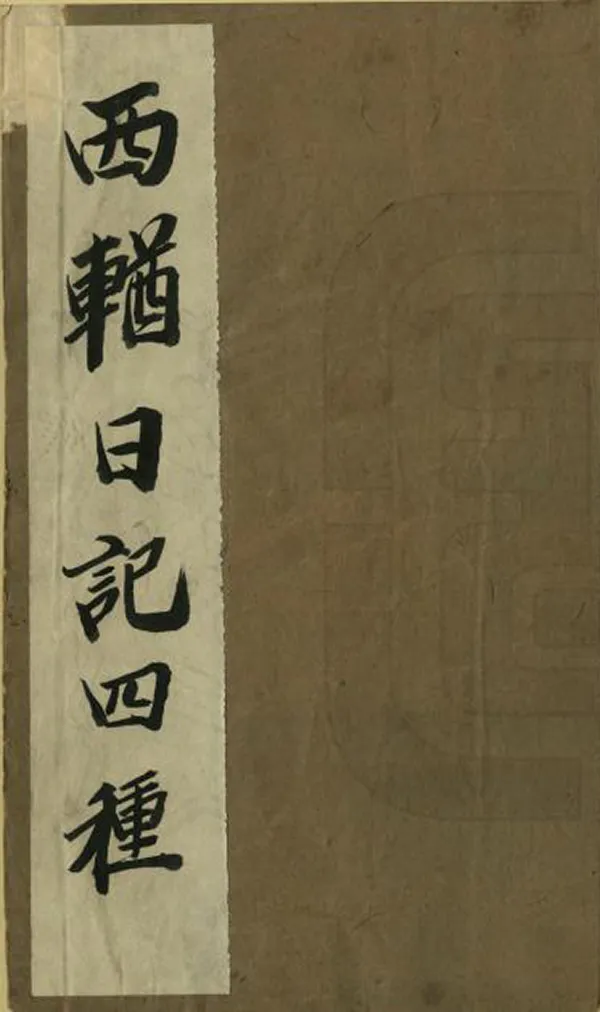 西輶日記四種